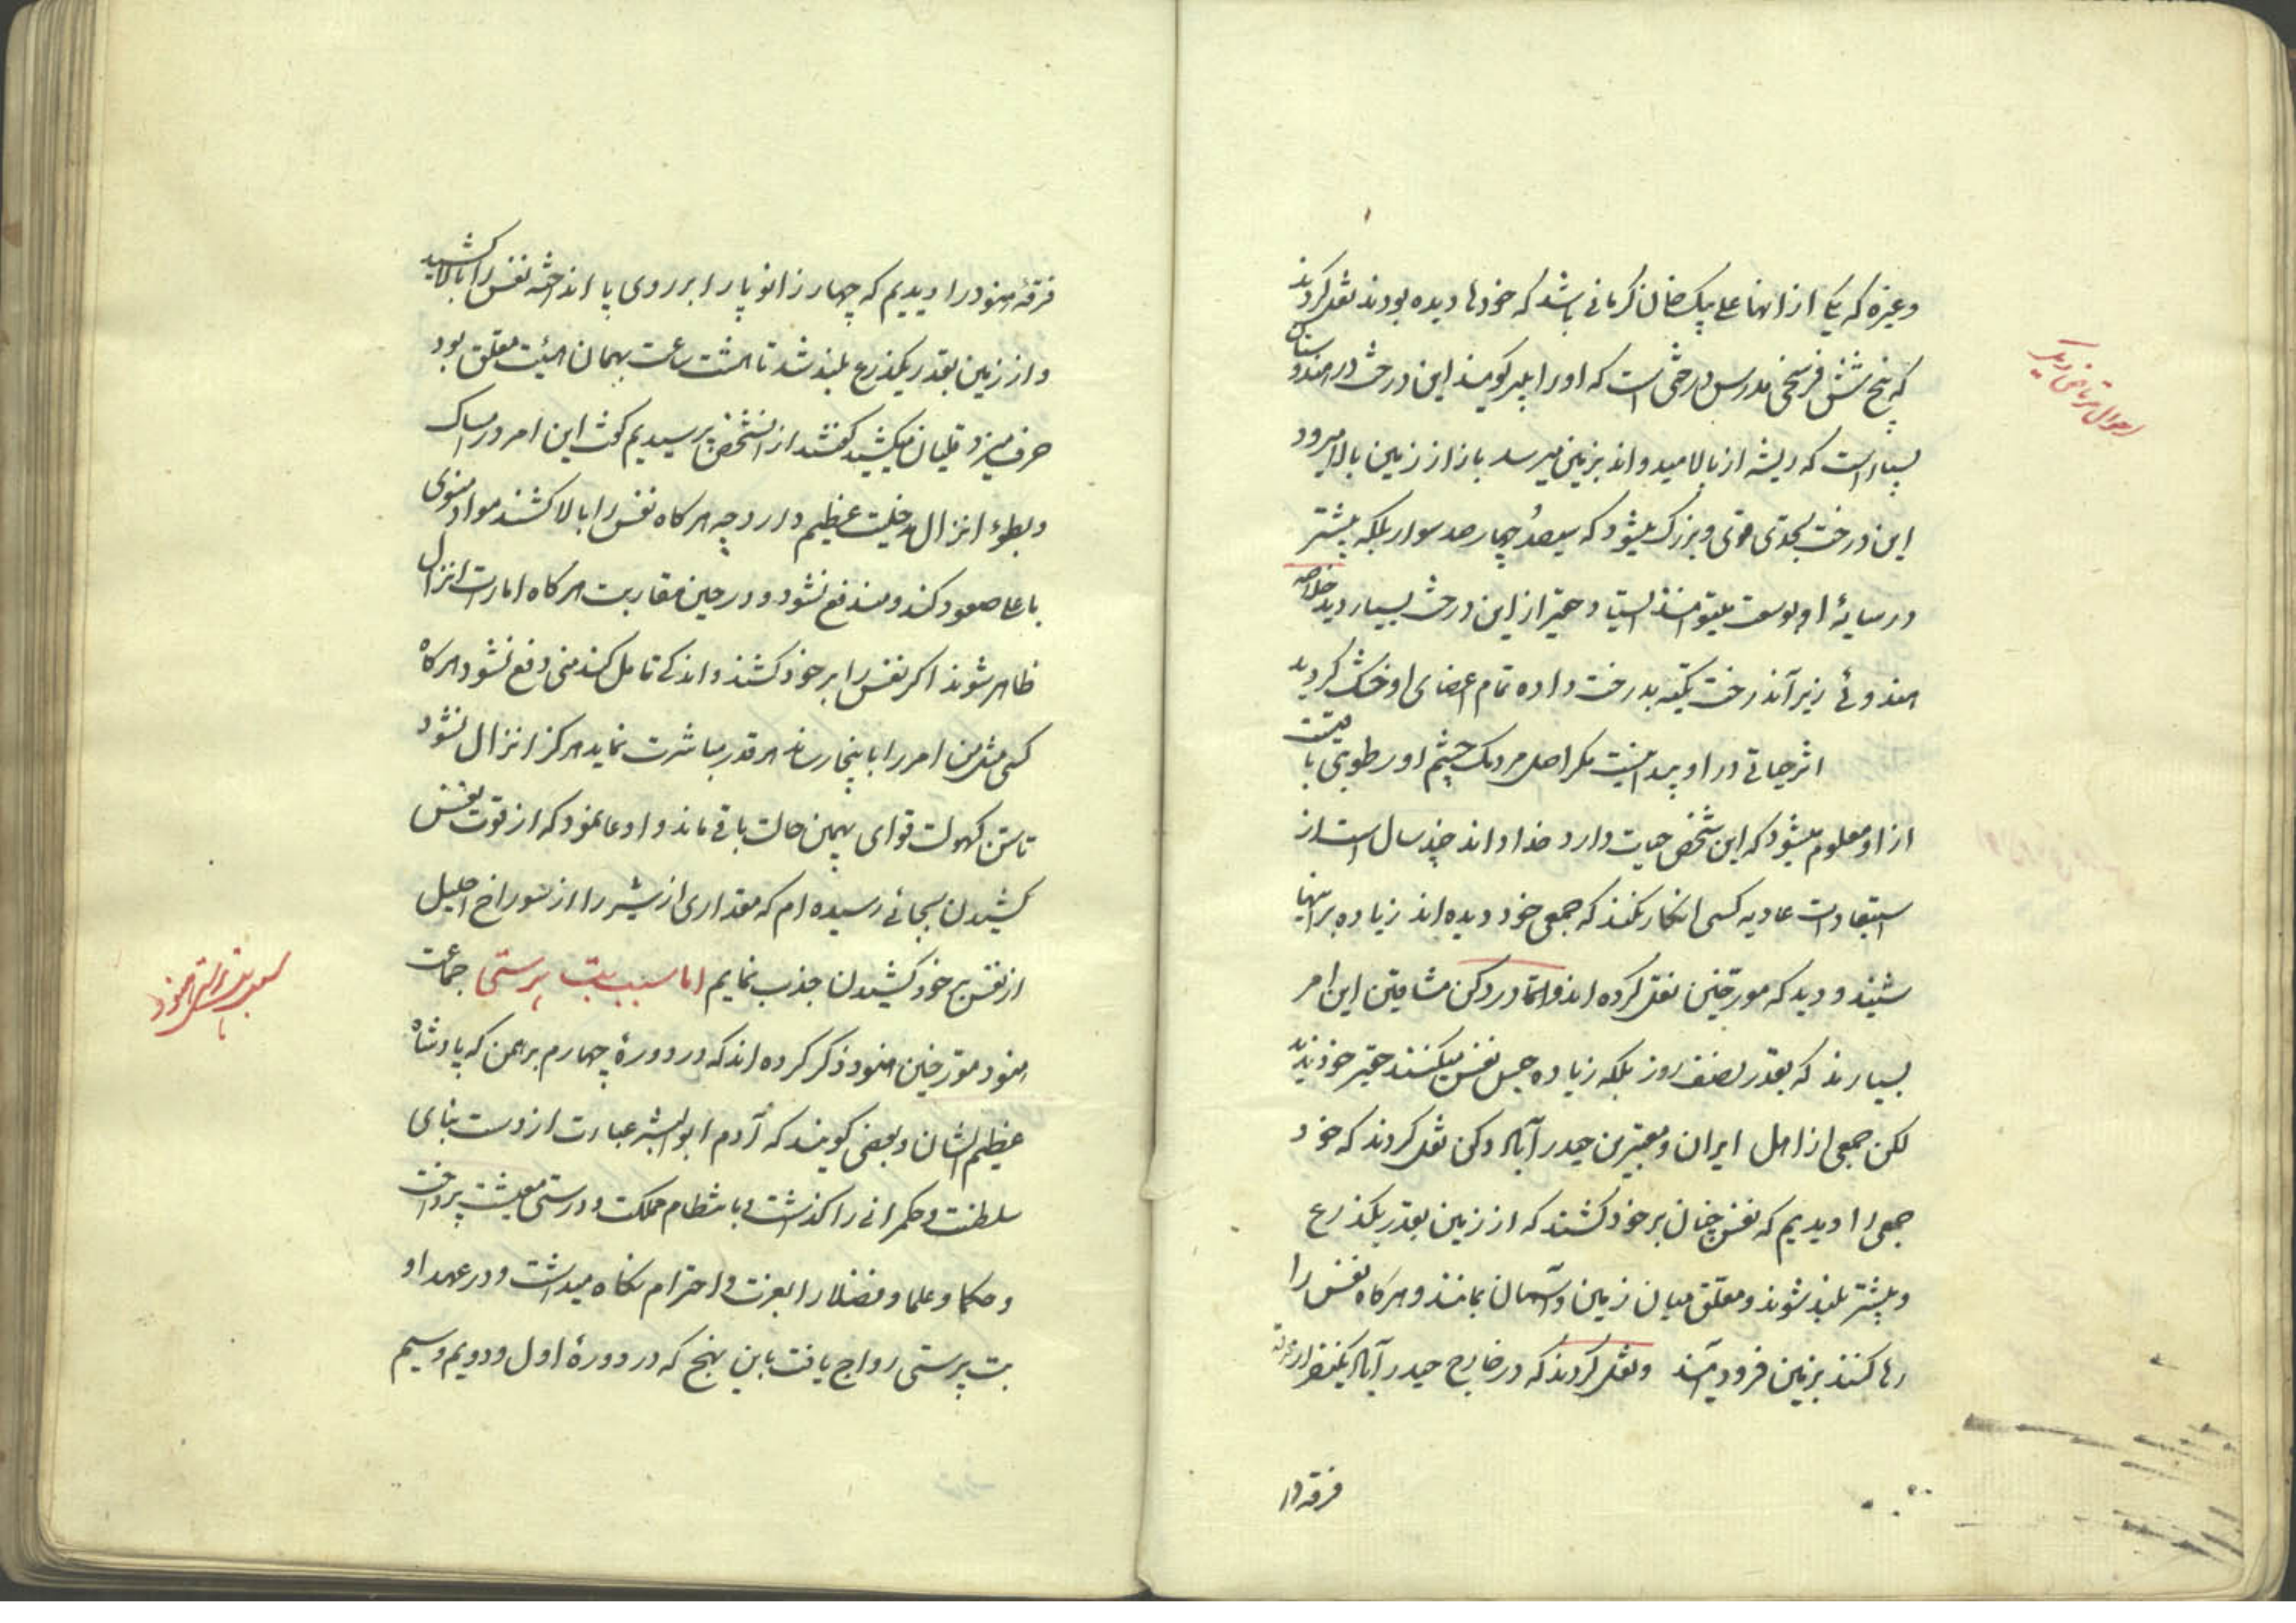 وغیره که یکی از آنها علی بیک خان کرمانی باشد که خودها دیده بودند نقل کردند
که پنج شش فرسخی مدرس درختی است که او را بلبر کویند این درخت در هندوستان
بسیار است که ریشه از بالا میدواند بزمین میرسد باز از زمین بالا میرود
این درخت بحدی قوی و بزرک میشود که سیصد چهارصد سوار بلکه بیشتر
در سایۀ او بوسعت میتوانند ایستاد حقیر از این درخت بسیار دید خلاصه
هندوئی زیر آندرخت تکیه بدرخت داده تمام اعضای او خشک کردیده
اثر حیاتی در او پیدا نیست مکر اصل مردمک چشم او رطوبتی باقیست
از او معلوم میشود که این شخص حیات دارد خدا داند چند سال است از
استبعادات عادیه کسی انکار نکند که جمعی خود دیده اند زیاده بر اینها
شنید و دید که مورخین نقل کرده اند و اما در دکن مشاقین این امر
بسیارند که بقدر نصف روز بلکه زیاده حبس نفس میکنند حقیر خود ندیده
لکن جمعی از اهل ایران و معتبرین حیدرآباد دکن نقل کردند که خود
جمعی را دیدیم که نفس چنان بر خود کشند که از زمین بقدر یکذرع
و بیشتر بلند شوند و معلق میان زمین و آسمان بمانند و هرکاه نفس را
رها کنند بزمین فرود آیند و نقل کردند که در خارج حیدرآباد یکنفر از
فرقۀ
فرقۀ هنود را دیدیم که چهار زانو پا را بر روی پا انداخته نفس را بالا کشید
و از زمین بقدر یکذرع بلند شد تا هشت ساعت بهمان هیئت معلق بود
حرف میزد و قلیان میکشید کفتند از آنشخص پرسیدیم کفت این امر در امساک
و بطوء انزال دخلیت عظیم دارد چه هرکاه نفس را بالا کشند مواد منوی
باعلا صعود کند و مندفع نشود و در حین مقاربت هرکاه امارت انزال
ظاهر شوند اکر نفس را بر خود کشند و اندکی تامل کنند منی دفع نشود هرکاه
کسی مثل من امر را باینجا رساند هر قدر مباشرت نماید هرکز انزال نشود
تا سن کهولت قوای بهمین حالت باقی ماند و ادعا نمود که از قوت نفس
کشیدن بجائی رسیده ام که مقداری از شیر را از سوراخ احلیل
از نفس بر خود کشیدن جذب نمایم اما سبب بت پرستی جماعت
هنود مورخین هنود ذکر کرده اند که در دورۀ چهارم برهمن که پادشاه
عظیم الشان و بعضی کویند که آدم ابوالبشر عبارت از دست بنای
سلطنت و حکمرانی را کذاشت و بانتظام مملکت و درستی معیشت پرداخت
و حکما و علما و فضلا را بعزت و احترام نکاه میداشت و در عهد او
بت پرستی رواج یافت باین نهج که در دورۀ اول و دویم و سیم